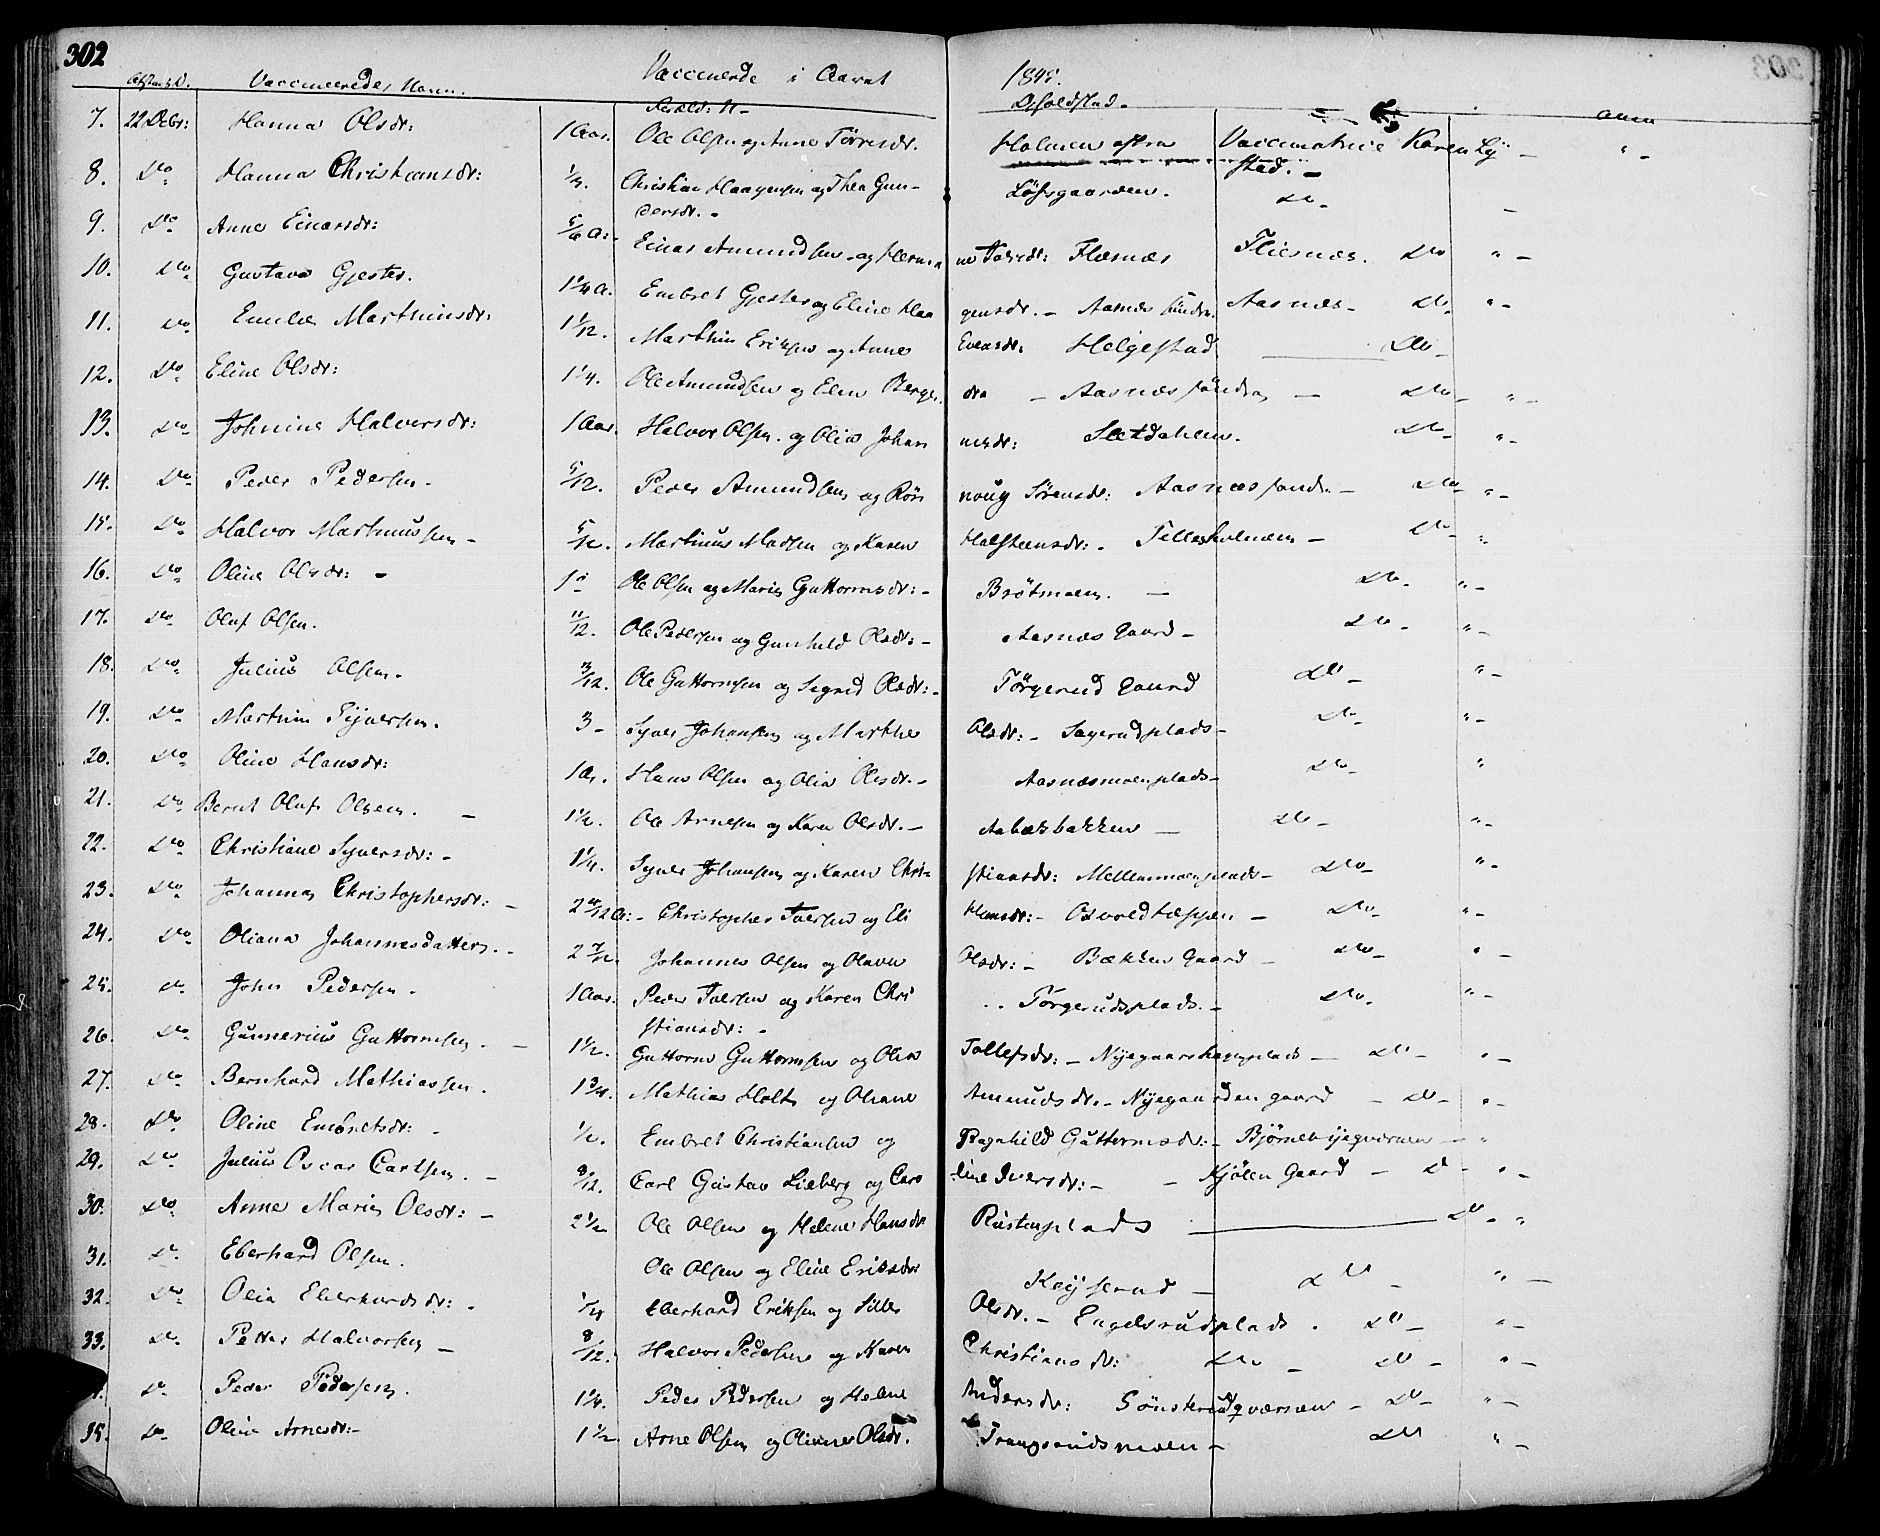 302
Vaccinerede i Aaret 1845.
Vaccineredes Navn. Opholdsted.
7. 22 Debr: Hanna Olsdr: 1 Aar. Ole Olsen og Anne Torresdr. Holmen Vaccinatrice Karen Ly
stad. -
8. Do Hanna Christiansdr: 1/4. Christian Haagensen og Thea Gun-
dersdr. - Løfsgaarden. Do -
9. Do Anne Einarsdr: 5/6 A: Einar Amundsen og Flisnæs. Do " -
10. Do Gustava Gjester. 1 1/4 A. Embret Gjester og Eline Haa
gensdr. - Aasnæs søndre. Aasnæs - Do " -
11. Do Emilie Marthinsdr: 1 1/12. Marthin Eriksen og Anne Evensdr: Helgestad Do -
12. Do Eline Olsdr: 1 1/4. Ole Amundsen og Elen Berges dr. - Aasnæs søndre - Do - " -
13. Do Johnine Halversdr: 1 Aar. Halvor Olsen og Olia Johan nesdr: Sletdahlen. Do - " -
14. Do Peder Pedersen - 5/12. Peder Amundsen og Rön noug Sörensdr: Aasnæs sondr. - Do - " -
15. Do Halvor Martinussen - 5/12. Martinus Madsen og Karen Halsteensdr: - Tellesholmen - Do - "
16. Do Oline Olsdr: - 1 - Ole Olsen og Maria Guttormsdr: - Brötmoen. - Do - " -
17. Do Oluf Olsen. 11/12. Ole Pedersen og Gunhild Olsdr: - Aasnæs Gaard - Do - " -
18. Do Julius Olsen. 3/12. Ole Guttormsen og Sigrid Olsdr: - Törgerud Gaard Do - " -
19. Do Marthin Syversen. 3 - Syver Johansen og Marthe Olsdr: - Sagerudplads - Do - " -
20. Do Oline Hansdr: 1 A. Hans Olsen og Olia Olsdr. - Aasnæsmoenplads - Do - "
21. Do Bernt Oluf Olsen. - 1 1/2. Ole Arnesen og Karen Olsdr. - Aabækbakken - Do - " -
22. Do Christiane Syversdr: - 1 1/4. Syver Johansen og Karen Chri- stiansdr: Mellemmoenplads - Do - "
23. Do Johanna Christophersdr: - 2 10/12 A: - Christopher Iversen og Eli Hansdr: - Osvoldtæppen - Do - " -
24. Do Oliana Johannesdatter. - 2 7/12. Johannes Olsen og Olava Olsdr: - Bækken Gaard - Do - " -
25. Do John Pedersen - 1 Aar. Peder Iversen og Karen Chri
stiansdr: - Törgerudsplads. - Do. " -
26. Do Gunnerius Guttormsen. - 1 1/2. Guttorm Guttormsen og Olia Tollefsdr: - Do - " -
27. Do Bernhard Mathiassen. 1 3/4. Mathias Holte og Oliane Amundsdr. - Nyegaarden gaard - Do - " -
28. Do Oline Embretsdr: - 1/2. Embret Christiansen og Ragnhild Guttormsdr: - - "
29. Do Julius Oscar Carlsen. - 8/12. Carl Gustav Lieberg og Caro line Iversdr: - - Kjölen Gaard - D - " -
30. Do Anne Maria Olsdr: - 2 1/2 Ole Olsen og Helene Hansdr Rustenplads Do - "
31. Do Eberhard Olsen. Ole Olsen og Eline Eriksdr: Keyserud - Do - " -
32. Do Olia Eberhardsdr: - 1/4 Eberhard Eriksen og Sille Olsdr. - Engelsrudplads. Do - " -
33. Do Petter Halvorsen - 8/12. Halvor Pedersen og Karen Christiansdr: Do - Do - " -
Do Peder Pedersen. 1 1/4. Peder Pedersen og Helene Andersdr: Sönsterudqværnen - Do - " -
35. Do Olivia Arnesdr: - 1 1/2 Arne Olsen og Olianne Olsdr. Trangsrudsmoen - Do " -